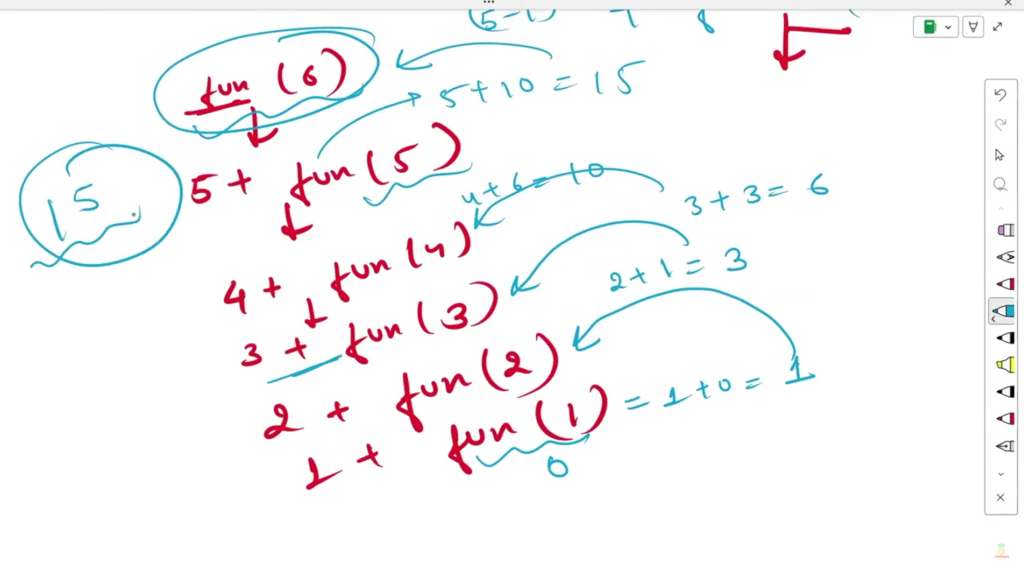 (5-1)
fun (6)
5+10 = 15
5 + fun (5)
15
4+6=10
3 + 3 = 6
4 + fun (4)
2 + 1 = 3
3 + fun (3)
2 + fun (2)
1 + fun (1) = 1 + 0 = 1
0